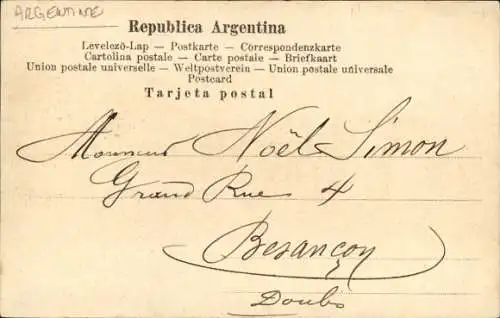 ARGENTINE
Republica Argentina
Levelezö-Lap — Postkarte — Correspondenzkarte
Cartolina postale — Carte postale — Briefkaart
Union postale universelle — Weltpostverein — Union postale universale
Postcard
Tarjeta postal
Monsieur Noël Simon
Grand Rue 4
Besançon
Doubs